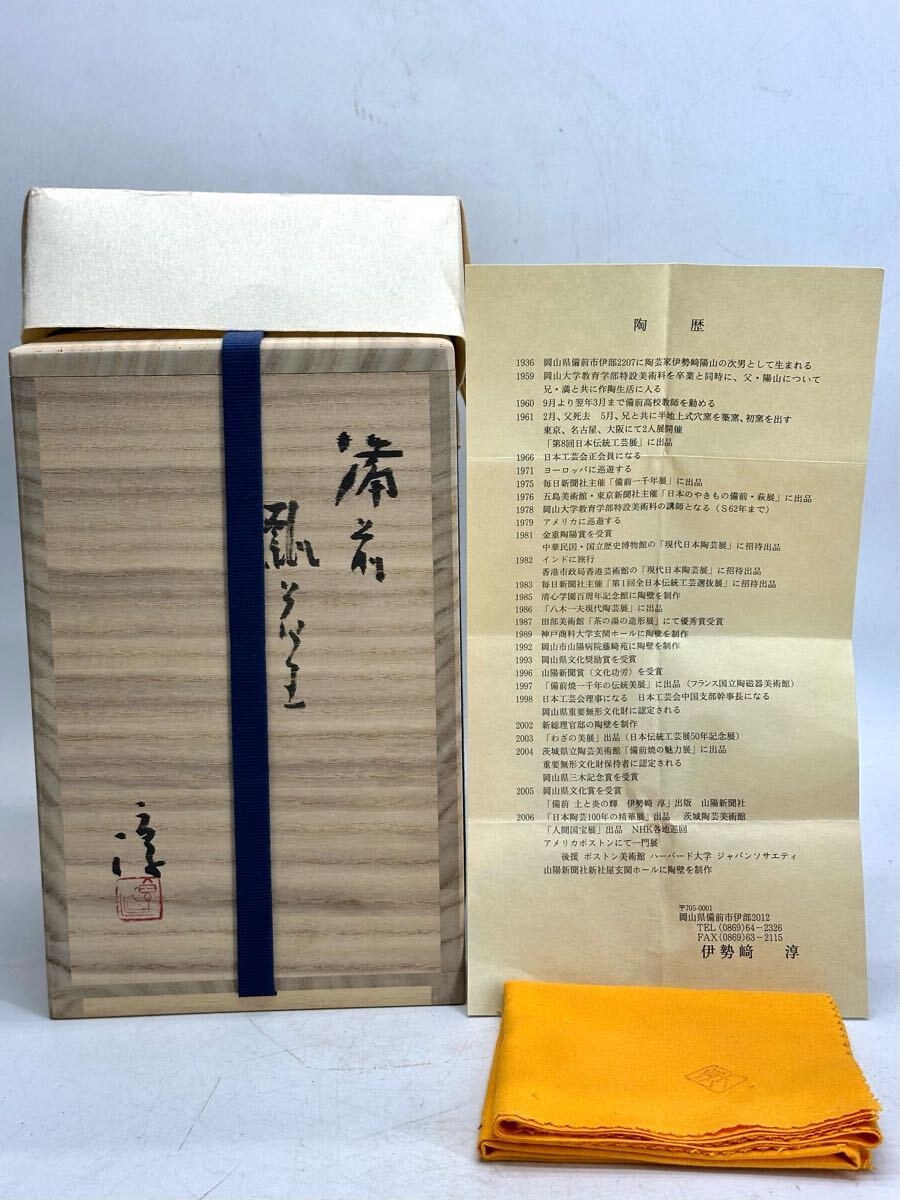 備前
淳
陶歴
1936 岡山県備前市伊部2207に陶芸家伊勢﨑陽山の次男として生まれる
1959 岡山大学教育学部特設美術科を卒業と同時に、父・陽山について
兄・満と共に作陶生活に入る
1960 9月より翌年3月まで備前高校教師を勤める
1961 2月、父死去 5月、兄と共に半地上式穴窯を築窯、初窯を出す
東京、名古屋、大阪にて2人展開催
「第8回日本伝統工芸展」に出品
1966 日本工芸会正会員になる
1971 ヨーロッパに巡遊する
1975 毎日新聞社主催「備前一千年展」に出品
1976 五島美術館・東京新聞社主催「日本のやきもの備前・萩展」に出品
1978 岡山大学教育学部特設美術科の講師となる(S62年まで)
1979 アメリカに巡遊する
1981 金重陶陽賞を受賞
中華民国・国立歴史博物館の「現代日本陶芸展」に招待出品
1982 インドに旅行
香港市政局香港芸術館の「現代日本陶芸展」に招待出品
1983 毎日新聞社主催「第1回全日本伝統工芸選抜展」に招待出品
1985 清心学園百周年記念館に陶壁を制作
1986 「八木一夫現代陶芸展」に出品
1987 田部美術館「茶の湯の造形展」にて優秀賞受賞
1989 神戸商科大学玄関ホールに陶壁を制作
1992 岡山市山陽病院藤崎苑に陶壁を制作
1993 岡山県文化奨励賞を受賞
1996 山陽新聞賞(文化功労)を受賞
1997 「備前焼一千年の伝統美展」に出品(フランス国立陶磁器美術館)
1998 日本工芸会理事になる 日本工芸会中国支部幹事長になる
岡山県重要無形文化財に認定される
2002 新総理官邸の陶壁を制作
2003 「わざの美展」出品(日本伝統工芸展50年記念展)
2004 茨城県立陶芸美術館「備前焼の魅力展」に出品
重要無形文化財保持者に認定される
岡山県三木記念賞を受賞
2005 岡山県文化賞を受賞
「備前 土と炎の輝 伊勢﨑 淳」出版 山陽新聞社
2006 「日本陶芸100年の精華展』出品 茨城陶芸美術館
「人間国宝展」出品 NHK各地巡回
アメリカボストンにて一門展
後援 ボストン美術館 ハーバード大学 ジャパンソサエティ
山陽新聞社新社屋玄関ホールに陶壁を制作
〒705-0001
岡山県備前市伊部2012
TEL(0869)64-2326
FAX(0869)63-2115
伊勢﨑 淳